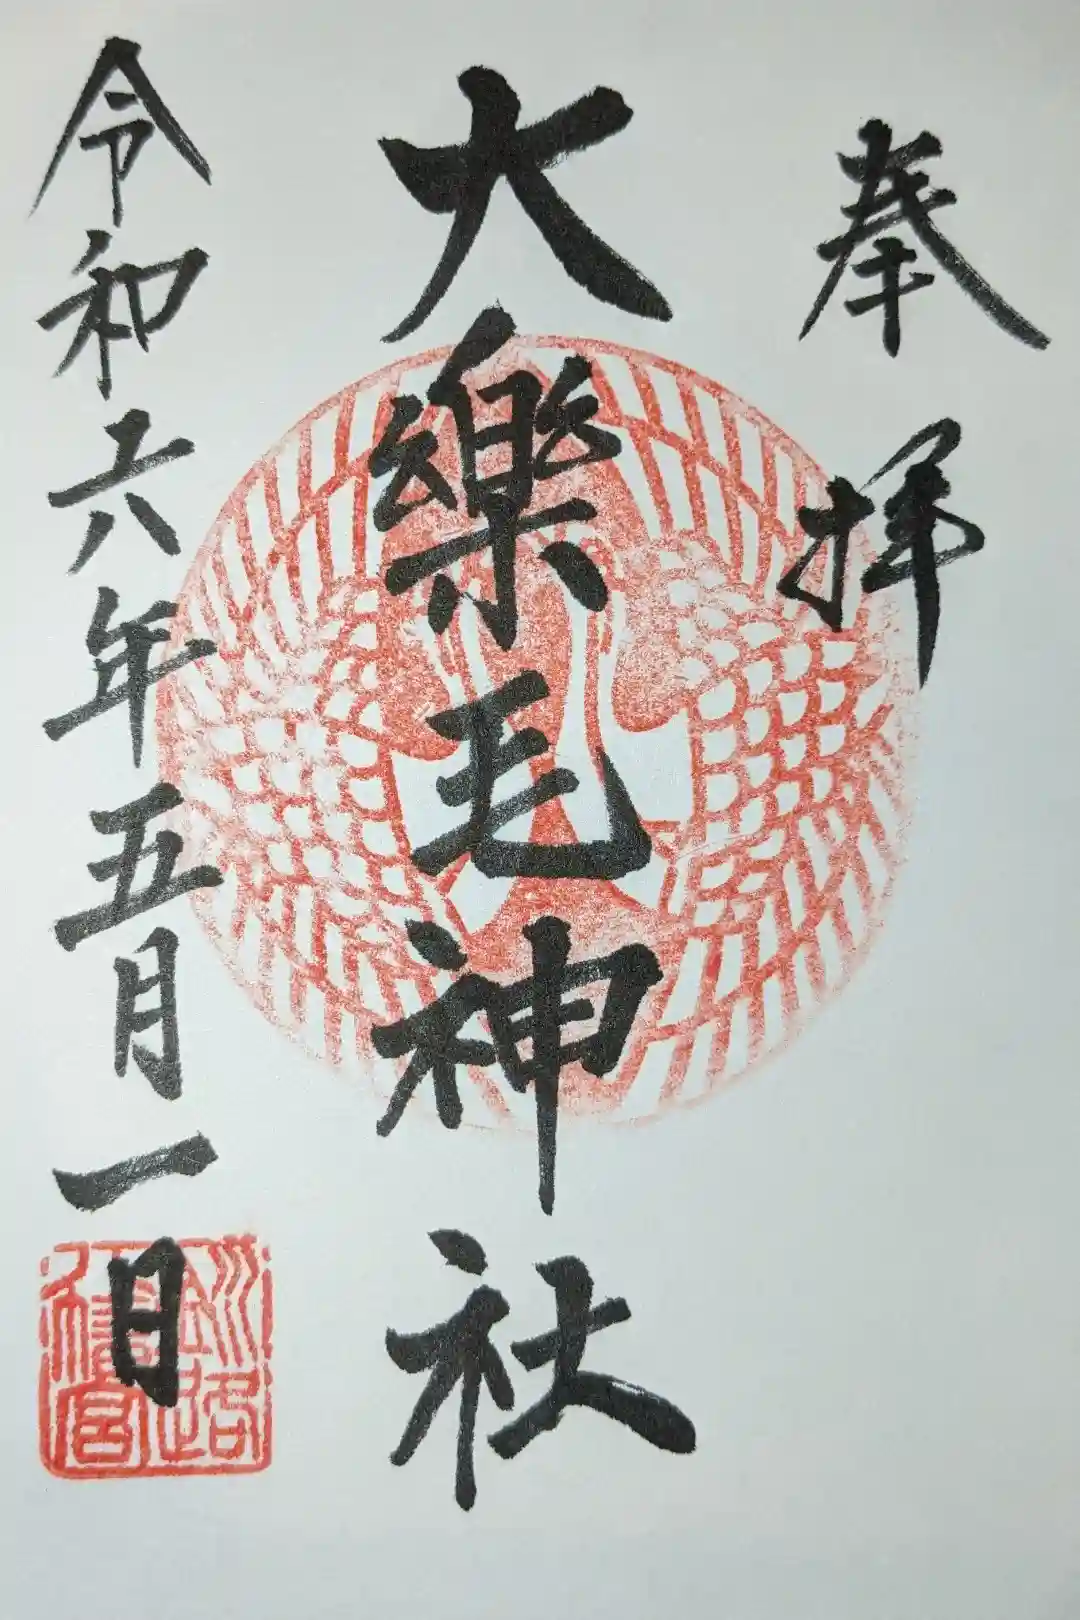 奉拝
大樂毛神社
令和六年五月一日